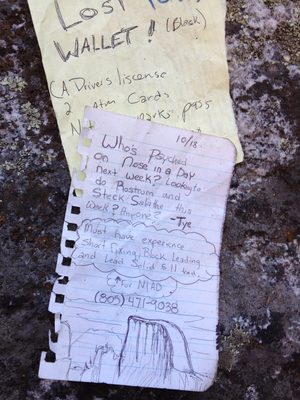 Lost
WALLET! (Black)
CA Drivers liscense
2 Atm Cards
parks pass
10/18
Who's Psyched
on Nose in a Day
next week? Looking to
do Rostrum and
Steck Salathe this
Week? Anyone? -Tye
Must have experience
Short Fixing, Block Leading
and Lead Solid 5.11 trad
For NIAD
(805) 471-9038